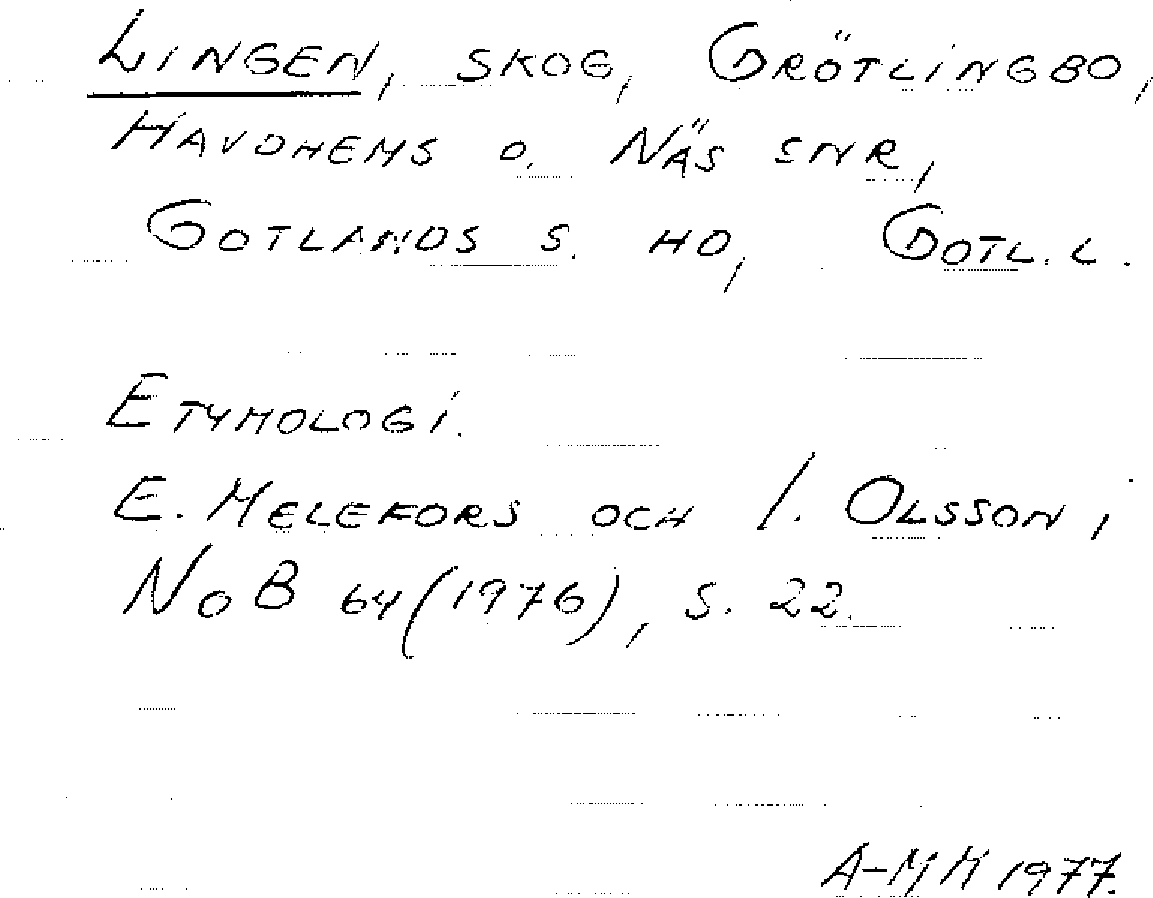 LINGEN, SKOG, GRÖTLINGBO,
HAVDHEMS O. NÄS SNR,
GOTLANDS S. HD, GOTL. L.
ETYMOLOGI.
E. MELEFORS OCH I. OLSSON i
NoB 64 (1976), S. 22.
A-MH 1977.